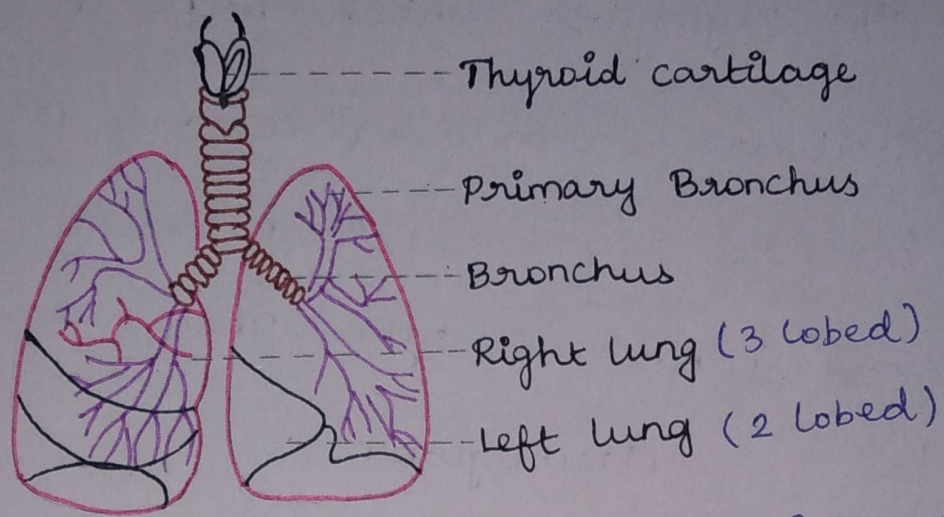 Thyroid cartilage
Primary Bronchus
Bronchus
Right lung (3 lobed)
Left lung (2 lobed)